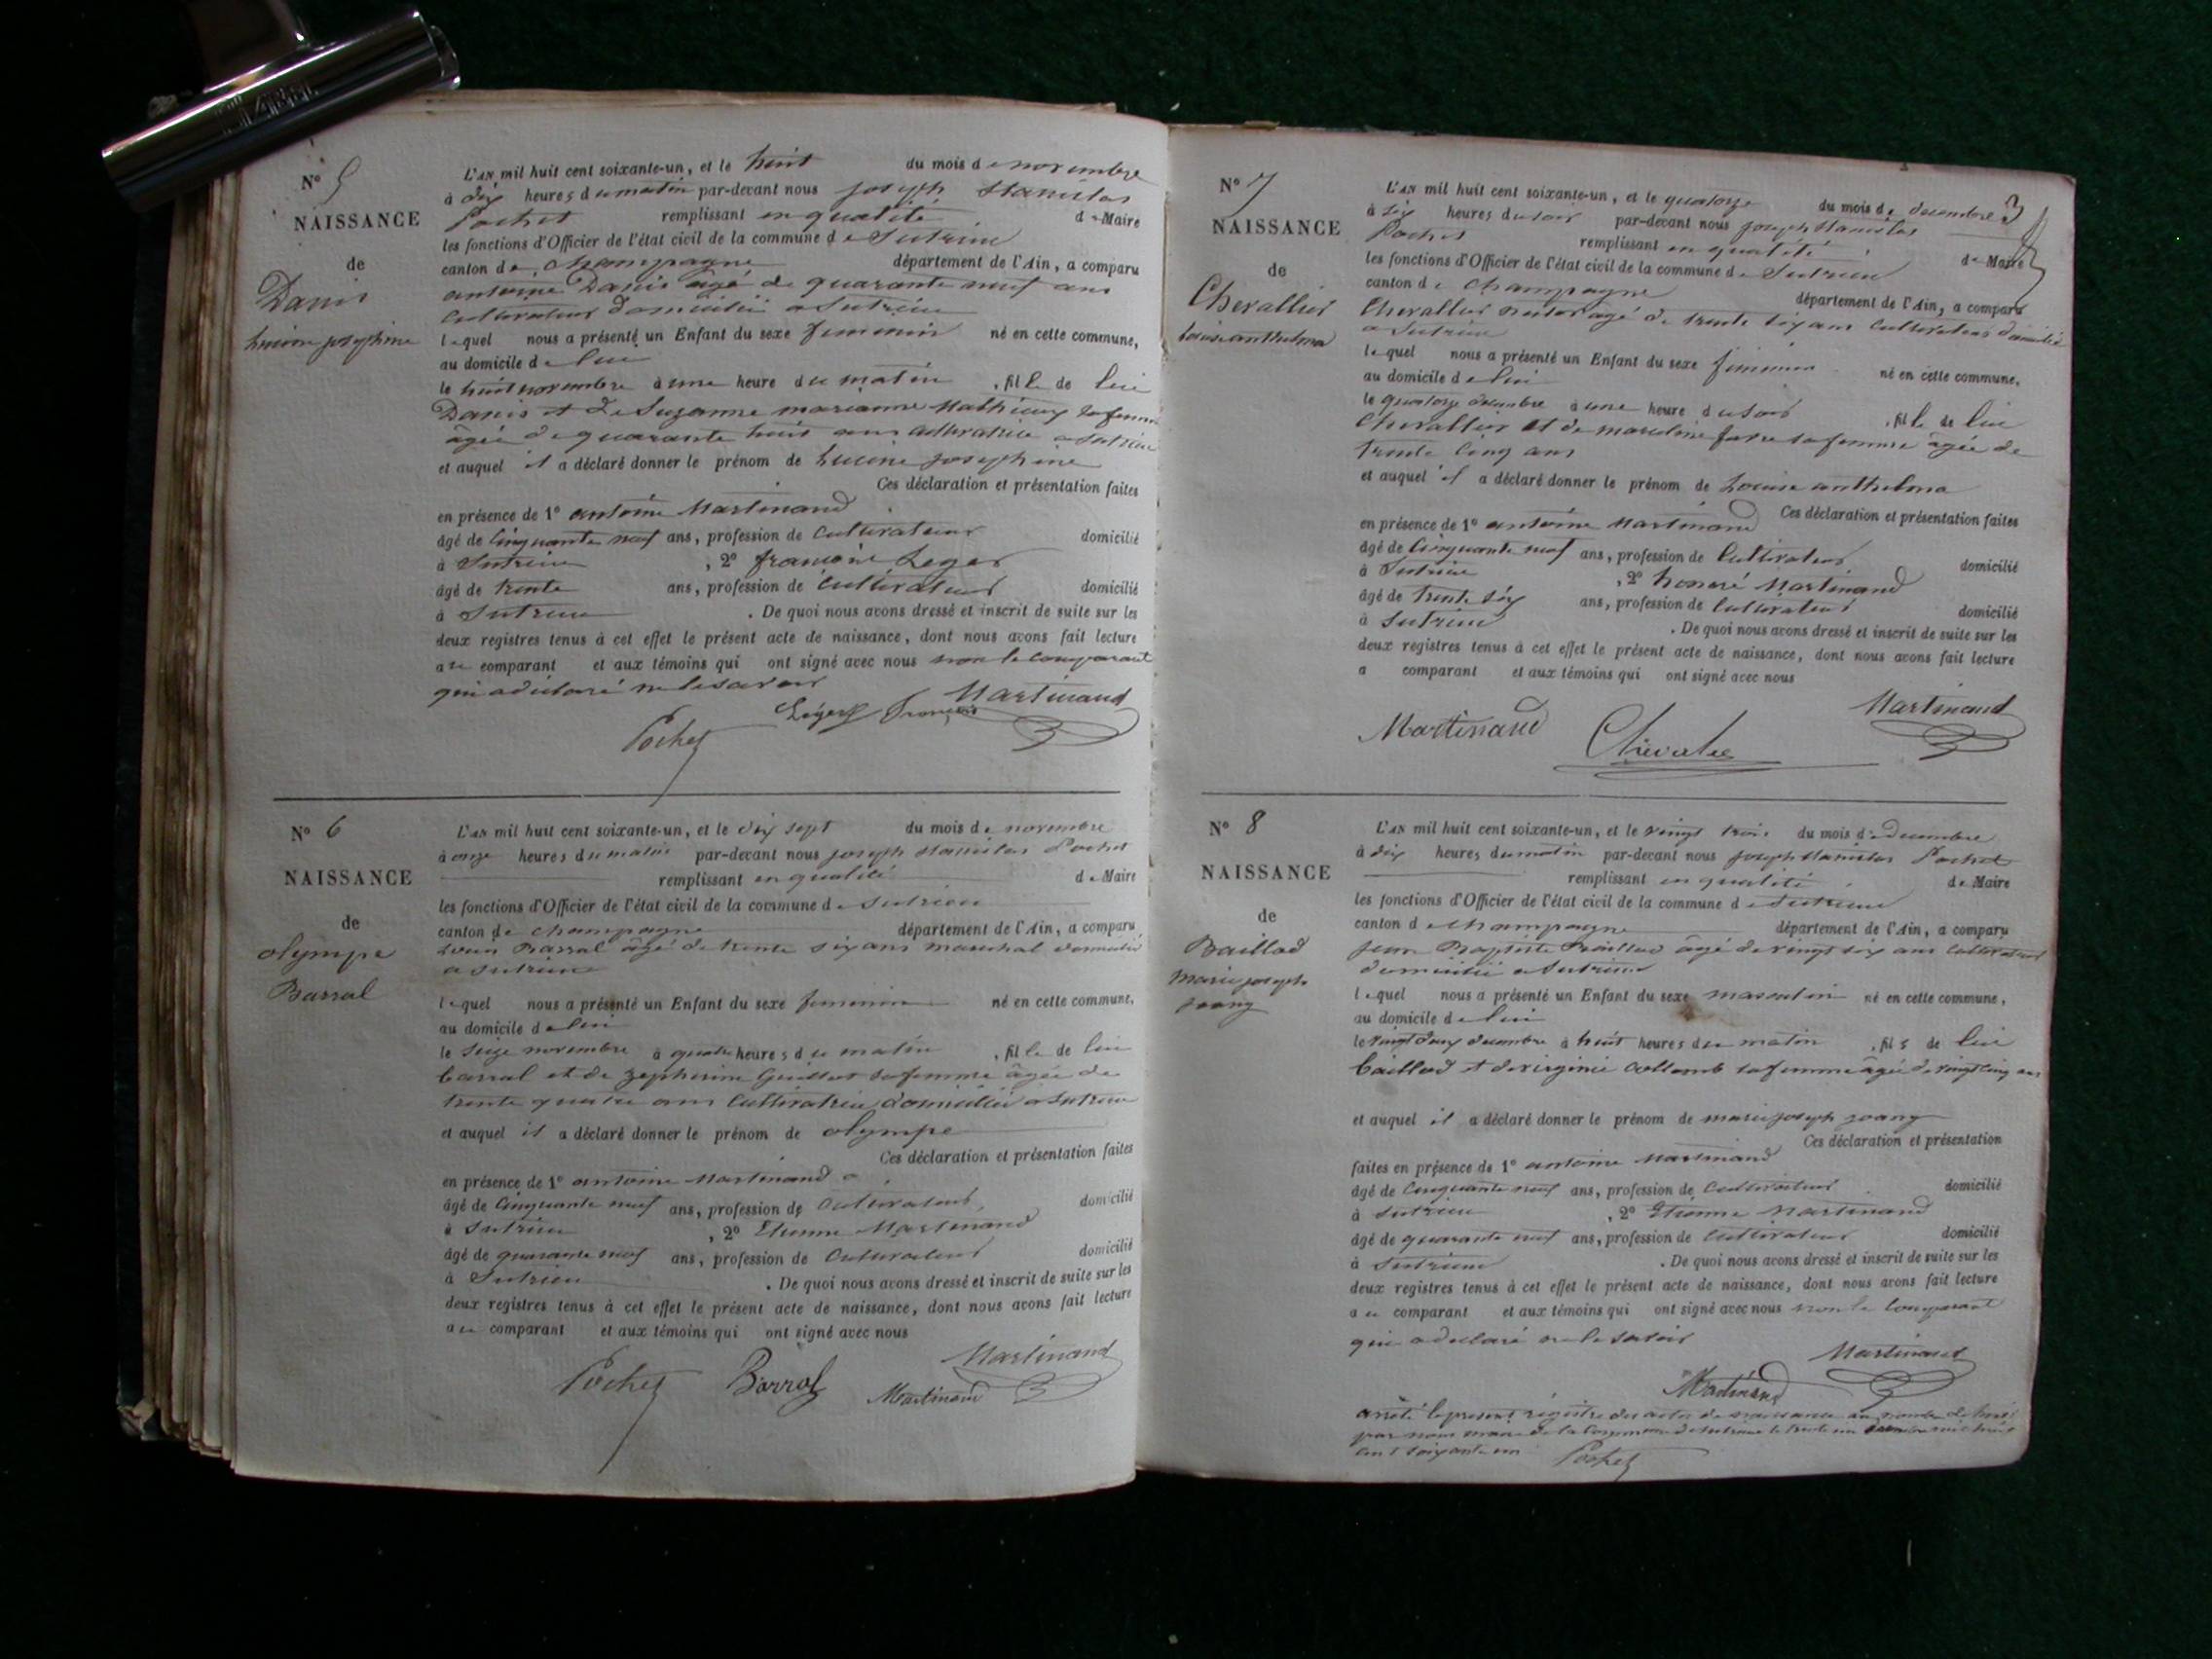 N° 5
NAISSANCE
de
Danis
Lucine josephine
L'AN mil huit cent soixante-un, et le huit du mois de novembre
à dix heures du matin par-devant nous joseph Stanislas
Pochet remplissant en qualité de Maire
les fonctions d'Officier de l'état civil de la commune de Sutrieu
canton de champagne département de l'Ain, a comparu
antoine Danis âgé de quarante neuf ans
Cultivateur domicilié a Sutrieu
lequel nous a présenté un Enfant du sexe feminin né en cette commune,
au domicile de lui
le huit novembre à une heure du matin, fille de lui
Danis et de Suzanne marianne Mathieux sa femme
âgée de quarante huit ans cultivatrice a Sutrieu
et auquel il a déclaré donner le prénom de Lucine josephine
Ces déclaration et présentation faites
en présence de 1° antoine Martinand
âgé de Cinquante neuf ans, profession de Cultivateur domicilié
à Sutrieu, 2° françois Leger
âgé de trente ans, profession de cultivateur domicilié
à Sutrieu. De quoi nous avons dressé et inscrit de suite sur les
deux registres tenus à cet effet le présent acte de naissance, dont nous avons fait lecture
au comparant et aux témoins qui ont signé avec nous non le comparant
qui a déclaré ne le savoir
Martinand
Léger François
Pochet
N° 6
NAISSANCE
de
olympe
Barral
L'AN mil huit cent soixante-un, et le dix sept du mois de novembre
à onze heures du matin par-devant nous joseph stanislas Pochet
remplissant en qualité de Maire
les fonctions d'Officier de l'état civil de la commune de Sutrieu
canton de champagne département de l'Ain, a comparu
Barral âgé de trente six ans marechal domicilié
a Sutrieu
lequel nous a présenté un Enfant du sexe feminin né en cette commune,
au domicile de lui
le seize novembre à quatre heures du matin, fille de lui
barral et de zepherine Guillot sa femme âgée de
trente quatre ans Cultivatrice domiciliée a Sutrieu
et auquel il a déclaré donner le prénom de olympe
Ces déclaration et présentation faites
en présence de 1° antoine Martinand
âgé de Cinquante neuf ans, profession de Cultivateur domicilié
à Sutrieu, 2° Etienne Martinand
âgé de quarante neuf ans, profession de Cultivateur domicilié
à Sutrieu. De quoi nous avons dressé et inscrit de suite sur les
deux registres tenus à cet effet le présent acte de naissance, dont nous avons fait lecture
au comparant et aux témoins qui ont signé avec nous
Martinand
Pochet Barral Martinand
3
N° 7
NAISSANCE
de
Chevallier
Louise anthelma
L'AN mil huit cent soixante-un, et le quatorze du mois de decembre
à six heures du soir par-devant nous joseph stanislas
Pochet remplissant en qualité de Maire
les fonctions d'Officier de l'état civil de la commune de Sutrieu
canton de champagne département de l'Ain, a comparu
Chevallier âgé de trente six ans Cultivateur domicilié
a Sutrieu
lequel nous a présenté un Enfant du sexe feminin né en cette commune,
au domicile de lui
le quatorze decembre à une heure du soir, fille de lui
Chevallier et de marceline sa femme âgée de
trente Cinq ans
et auquel il a déclaré donner le prénom de Louise anthelma
Ces déclaration et présentation faites
en présence de 1° antoine Martinand
âgé de Cinquante neuf ans, profession de Cultivateur domicilié
à Sutrieu, 2° honoré Martinand
âgé de trente six ans, profession de Cultivateur domicilié
à Sutrieu. De quoi nous avons dressé et inscrit de suite sur les
deux registres tenus à cet effet le présent acte de naissance, dont nous avons fait lecture
a comparant et aux témoins qui ont signé avec nous
Martinand
Martinand
N° 8
NAISSANCE
de
Baillod
Marie joseph
joany
L'AN mil huit cent soixante-un, et le vingt trois du mois de decembre
à dix heures du matin par-devant nous joseph stanislas Pochet
remplissant en qualité de Maire
les fonctions d'Officier de l'état civil de la commune de Sutrieu
canton de champagne département de l'Ain, a comparu
jean Baptiste Baillod âgé de vingt six ans Cultivateur
domicilié a Sutrieu
lequel nous a présenté un Enfant du sexe masculin né en cette commune,
au domicile de lui
le vingt deux decembre à huit heures du matin, fils de lui
baillod et de virginie collomb sa femme âgée de vingt cinq ans
et auquel il a déclaré donner le prénom de marie joseph joany
Ces déclaration et présentation
faites en présence de 1° antoine Martinand
âgé de Cinquante neuf ans, profession de Cultivateur domicilié
à Sutrieu, 2° Etienne Martinand
âgé de quarante neuf ans, profession de Cultivateur domicilié
à Sutrieu. De quoi nous avons dressé et inscrit de suite sur les
deux registres tenus à cet effet le présent acte de naissance, dont nous avons fait lecture
au comparant et aux témoins qui ont signé avec nous non le Comparant
qui a déclaré ne le savoir
Martinand
Martinand
arrêté le present régistre des actes de naissance au nombre de huit
par nous maire de la Commune de Sutrieu le trente un mil huit
cent soixante un Pochet